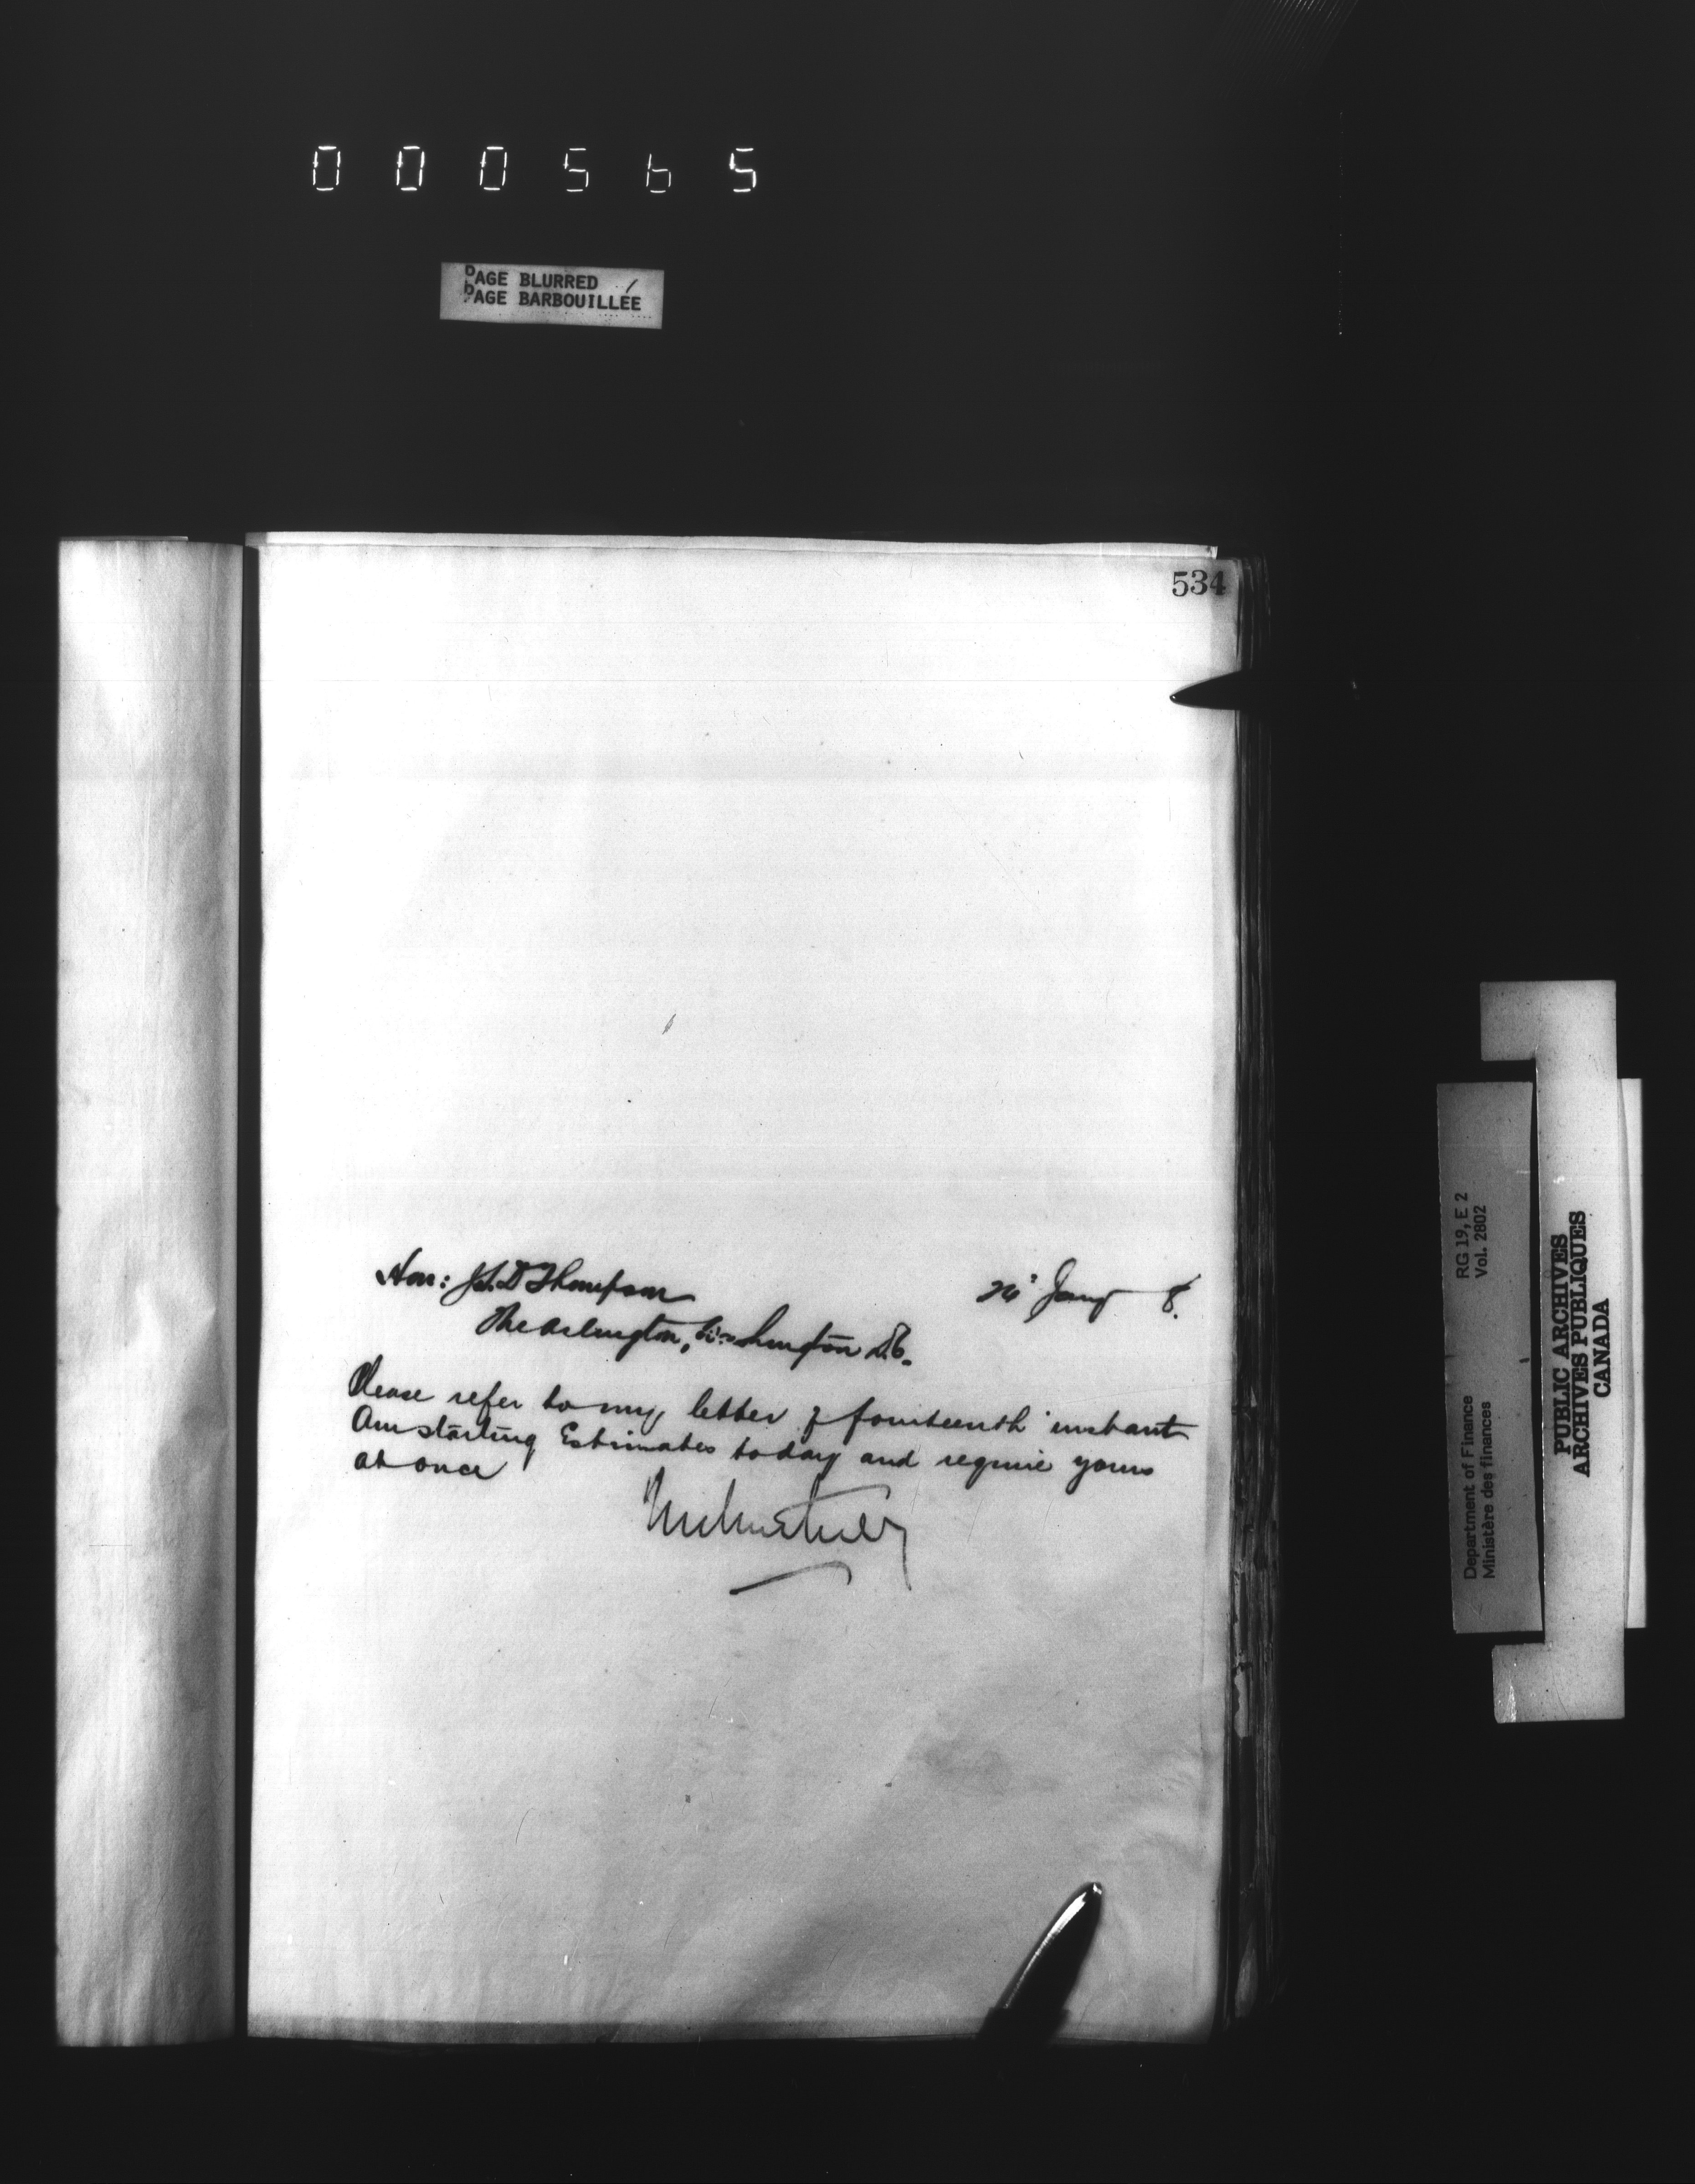 000565
PAGE BLURRED
PAGE BARBOUILLÉE
534
Hon: J.S.D Thompson
24' Jany 8.
The Arlington, Washington D.C.
Please refer to my letter of fourteenth instant
Am starting Estimates today and require yours
at once
RG 19, E 2
Vol. 2802
Department of Finance
Ministère des finances
PUBLIC ARCHIVES
ARCHIVES PUBLIQUES
CANADA